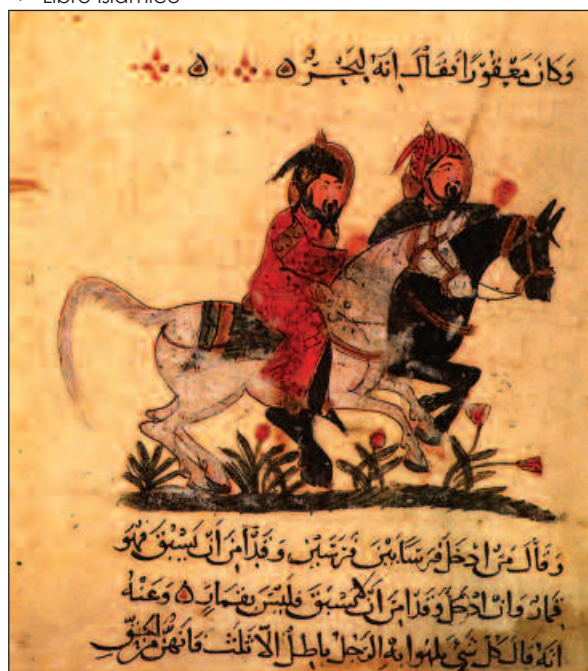 Libro islámico
وكان معقورا فقال انه لبحر ه ه
وقال من ادخل فرسا بين فرسين وقد امن ان يسبق فهو
قمار وان ادخل وقد امن ان لا يسبق فليس بقمار ه وعنه
انه قال كل شي يلهوا به الرجل باطل الا ثلث فانهن من الحق